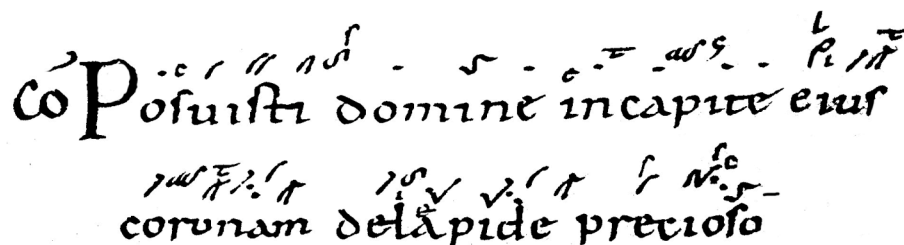 Cō Posuisti domine in capite eius
coronam de lapide precioso